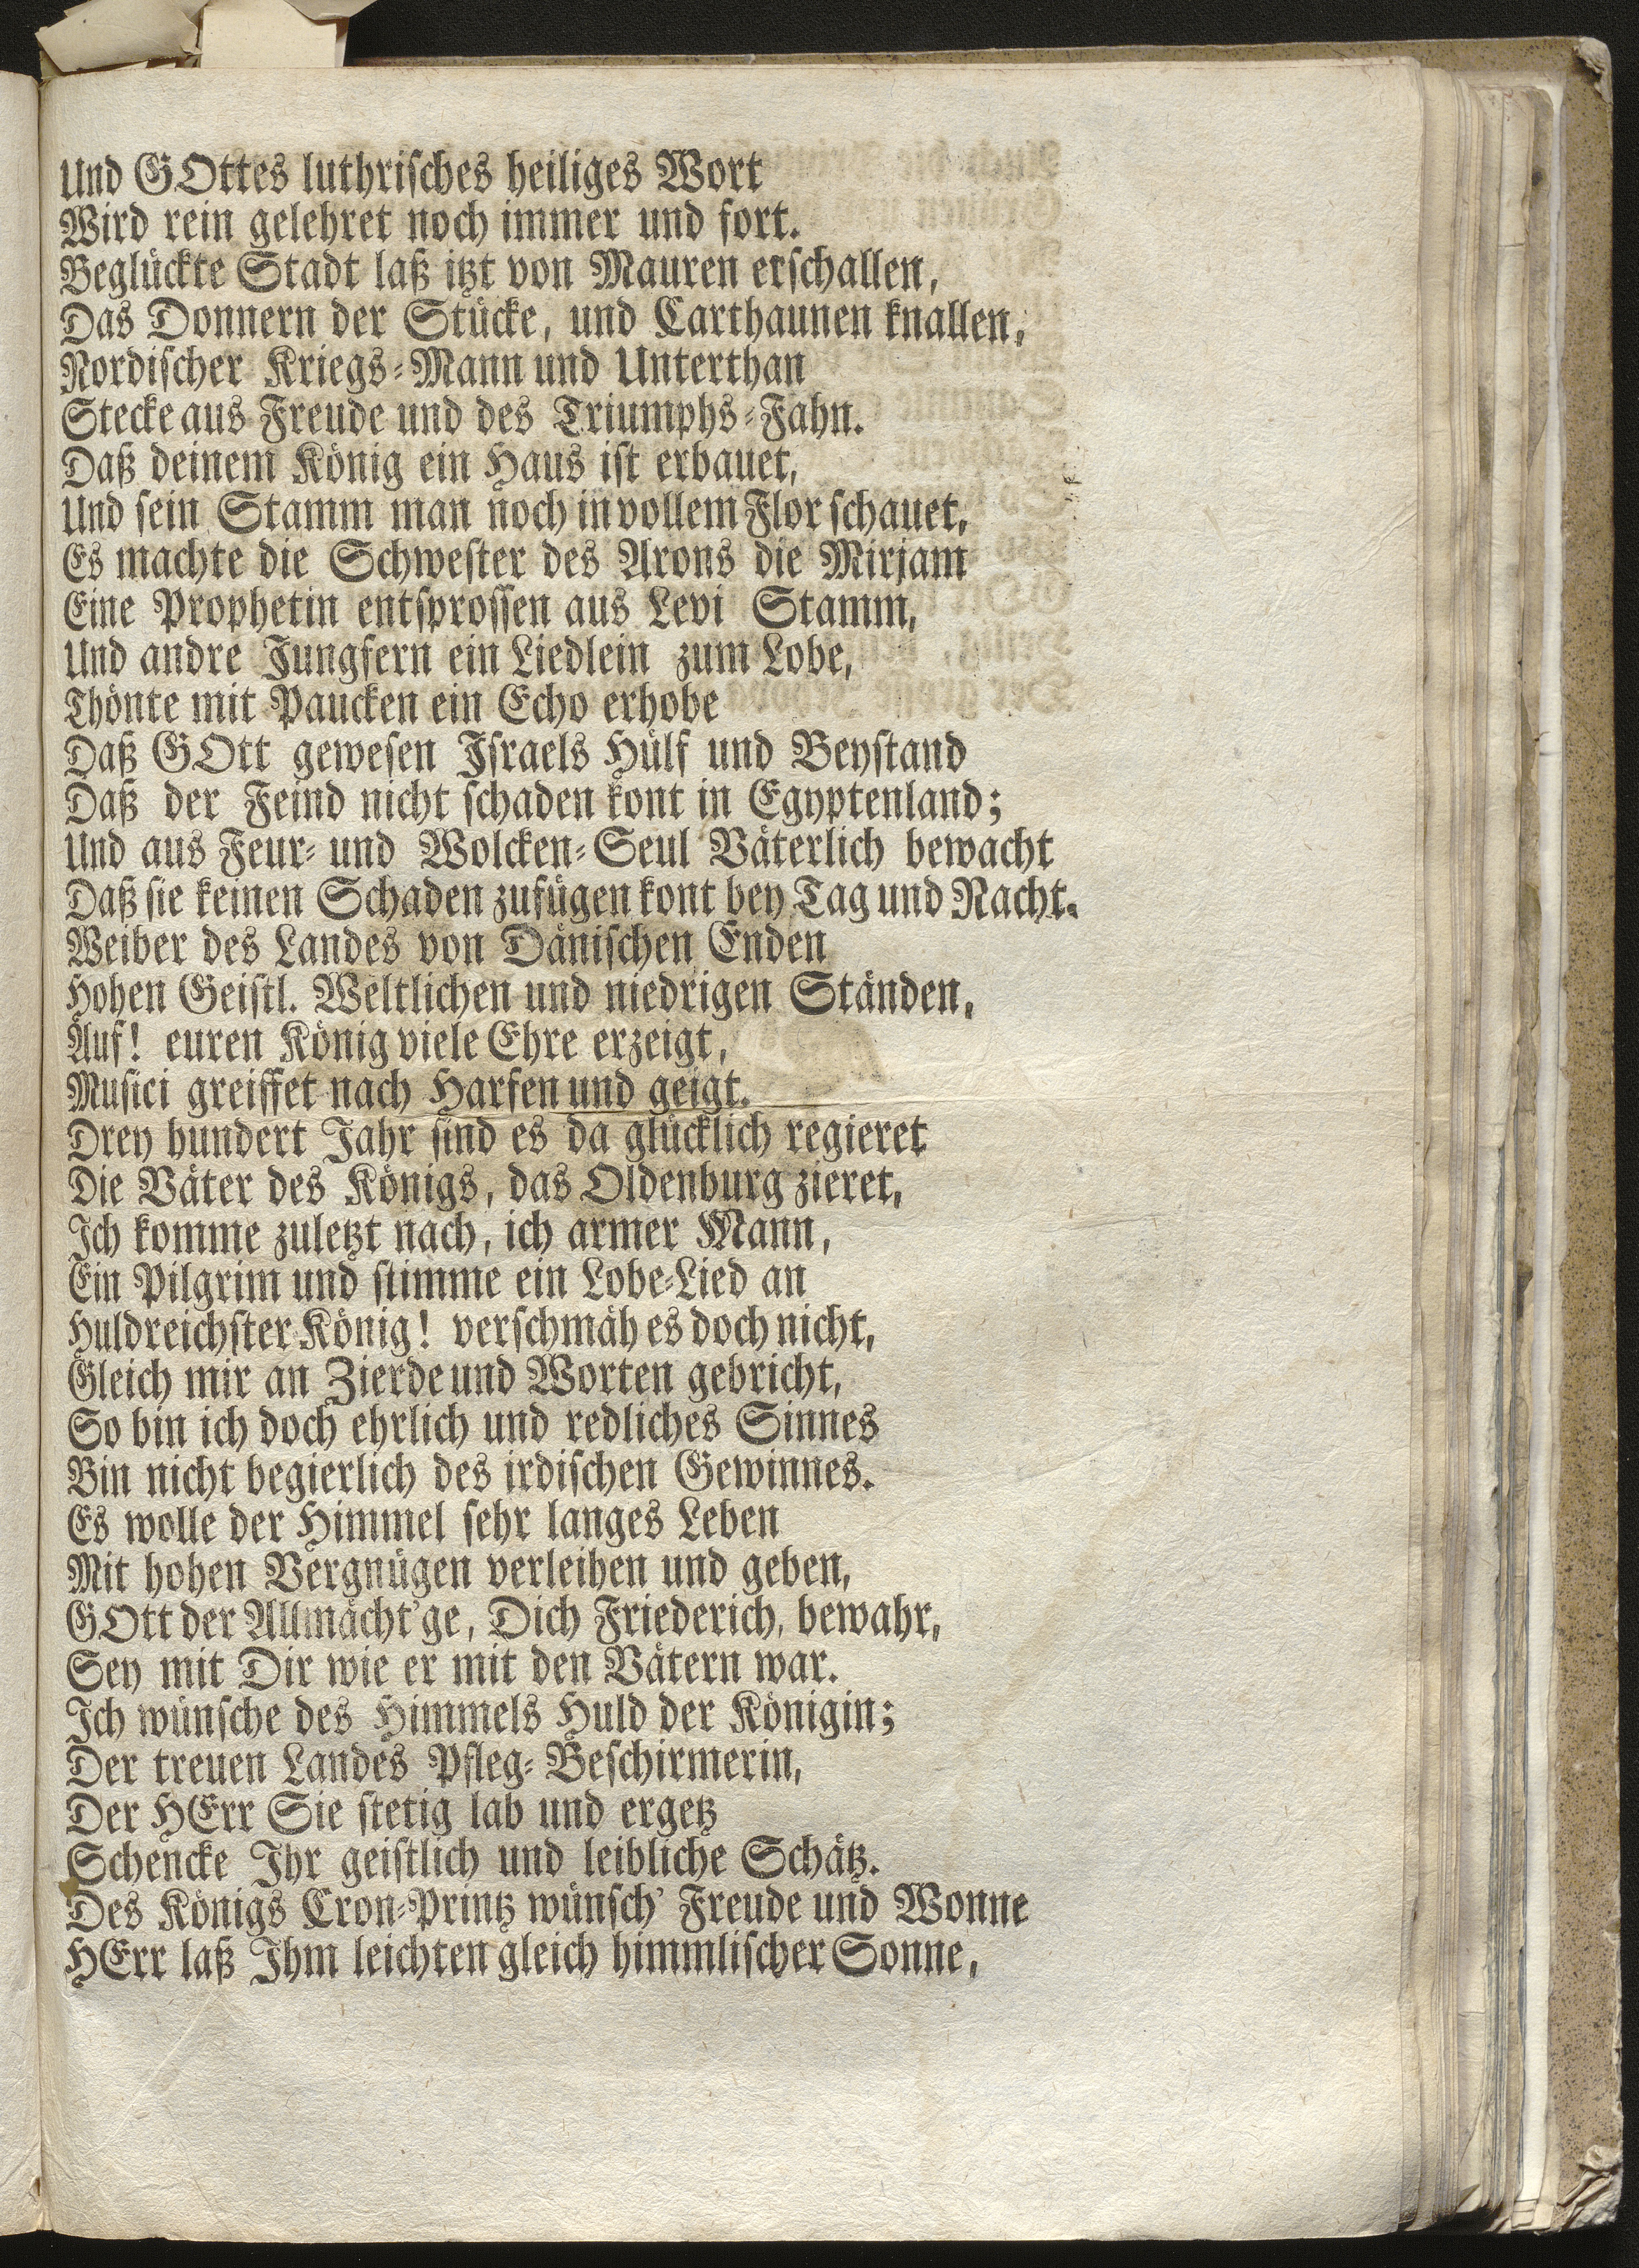 Und GOttes luthrisches heiliges Wort
Wird rein gelehret noch immer und fort.
Beglückte Stadt laß itzt von Mauren erschallen,
Das Donnern der Stücke, und Carthaunen knallen,
Nordischer Kriegs-Mann und Unterthan
Stecke aus Freude und des Triumphs-Fahn.
Daß deinem König ein Haus ist erbauet,
Und sein Stamm man noch in vollem Flor schauet,
Es machte die Schwester des Arons die Mirjam
Eine Prophetin entsprossen aus Levi Stamm,
Und andre Jungfern ein Liedlein zum Lobe,
Thönte mit Paucken ein Echo erhobe
Daß GOtt gewesen Israels Hülf und Beystand
Daß der Feind nicht schaden kont in Egyptenland;
Und aus Feur- und Wolcken-Seul Väterlich bewacht
Daß sie keinen Schaden zufügen kont bey Tag und Nacht.
Weiber des Landes von Dänischen Enden
Hohen Geistl. Weltlichen und niedrigen Ständen,
Auf! euren König viele Ehre erzeigt,
Musici greiffet nach Harfen und geigt.
Drey hundert Jahr sind es da glücklich regieret
Die Väter des Königs, das Oldenburg zieret,
Ich komme zuletzt nach, ich armer Mann,
Ein Pilgrim und stimme ein Lobe-Lied an
Huldreichster König! verschmäh es doch nicht,
Gleich mir an Zierde und Worten gebricht,
So bin ich doch ehrlich und redliches Sinnes
Bin nicht begierlich des irdischen Gewinnes.
Es wolle der Himmel sehr langes Leben
Mit hohen Vergnügen verleihen und geben,
GOtt der Allmächt'ge, Dich Friederich, bewahr,
Sey mit Dir wie er mit den Vätern war.
Ich wünsche des Himmels Huld der Königin;
Der treuen Landes Pfleg-Beschirmerin,
Der HErr Sie stetig lab und ergetz
Schencke Ihr geistlich und leibliche Schätz.
Des Königs Cron-Printz wünsch' Freude und Wonne
HErr laß Ihm leichten gleich himmlischer Sonne,